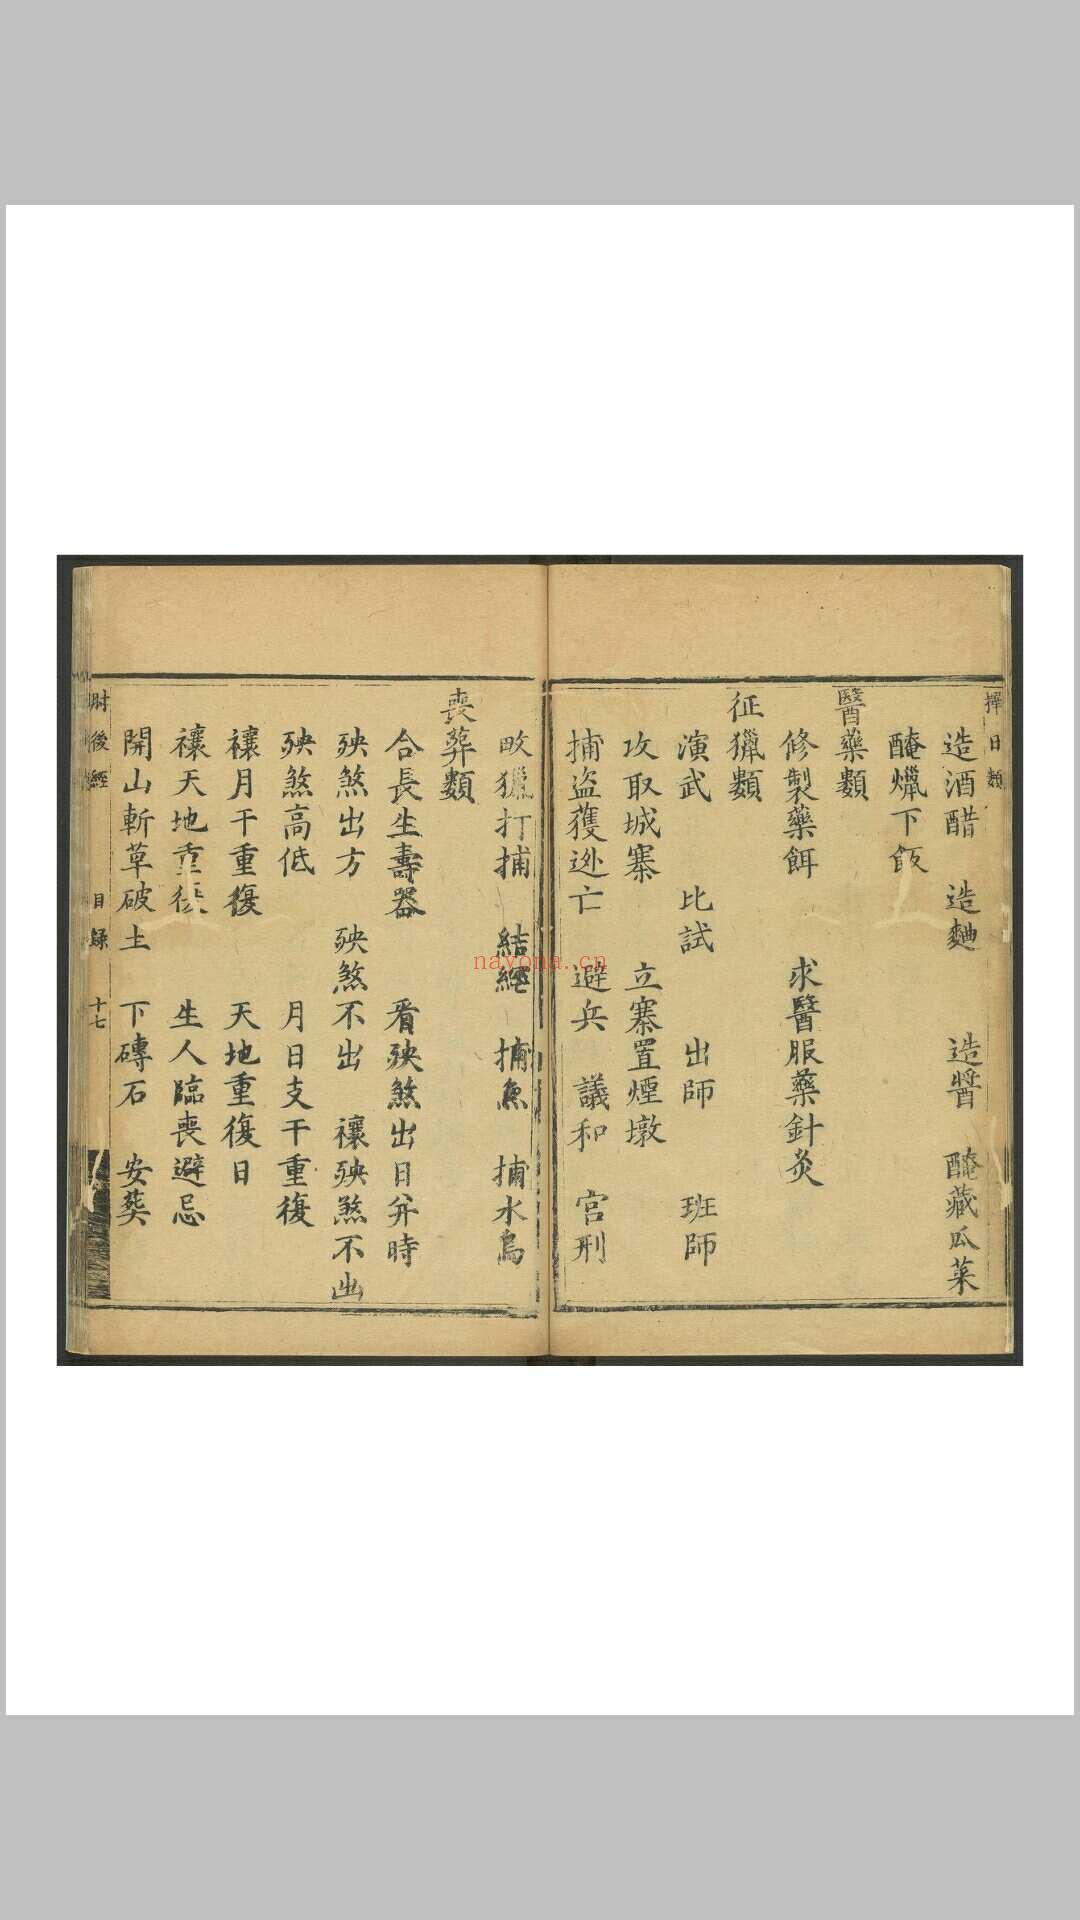 擇日類
造酒醋 造麯 造醬 醃藏瓜菜
醃爉下飯
醫藥類
修製藥餌 求醫服藥針灸
征獵類
演武 比試 出師 班師
攻取城寨 立寨置煙墩
捕盜獲迯亡 避兵 議和 宮刑
畋獵打捕 結網 捕魚 捕水鳥
喪葬類
合長生壽器 看殃煞出日并時
殃煞出方 殃煞不出 禳殃煞不出
殃煞高低 月日支干重復
禳月干重復 天地重復日
禳天地重復 生人臨喪避忌
開山斬草破土 下磚石 安葬
肘後經 目錄 十七
nayona.cn